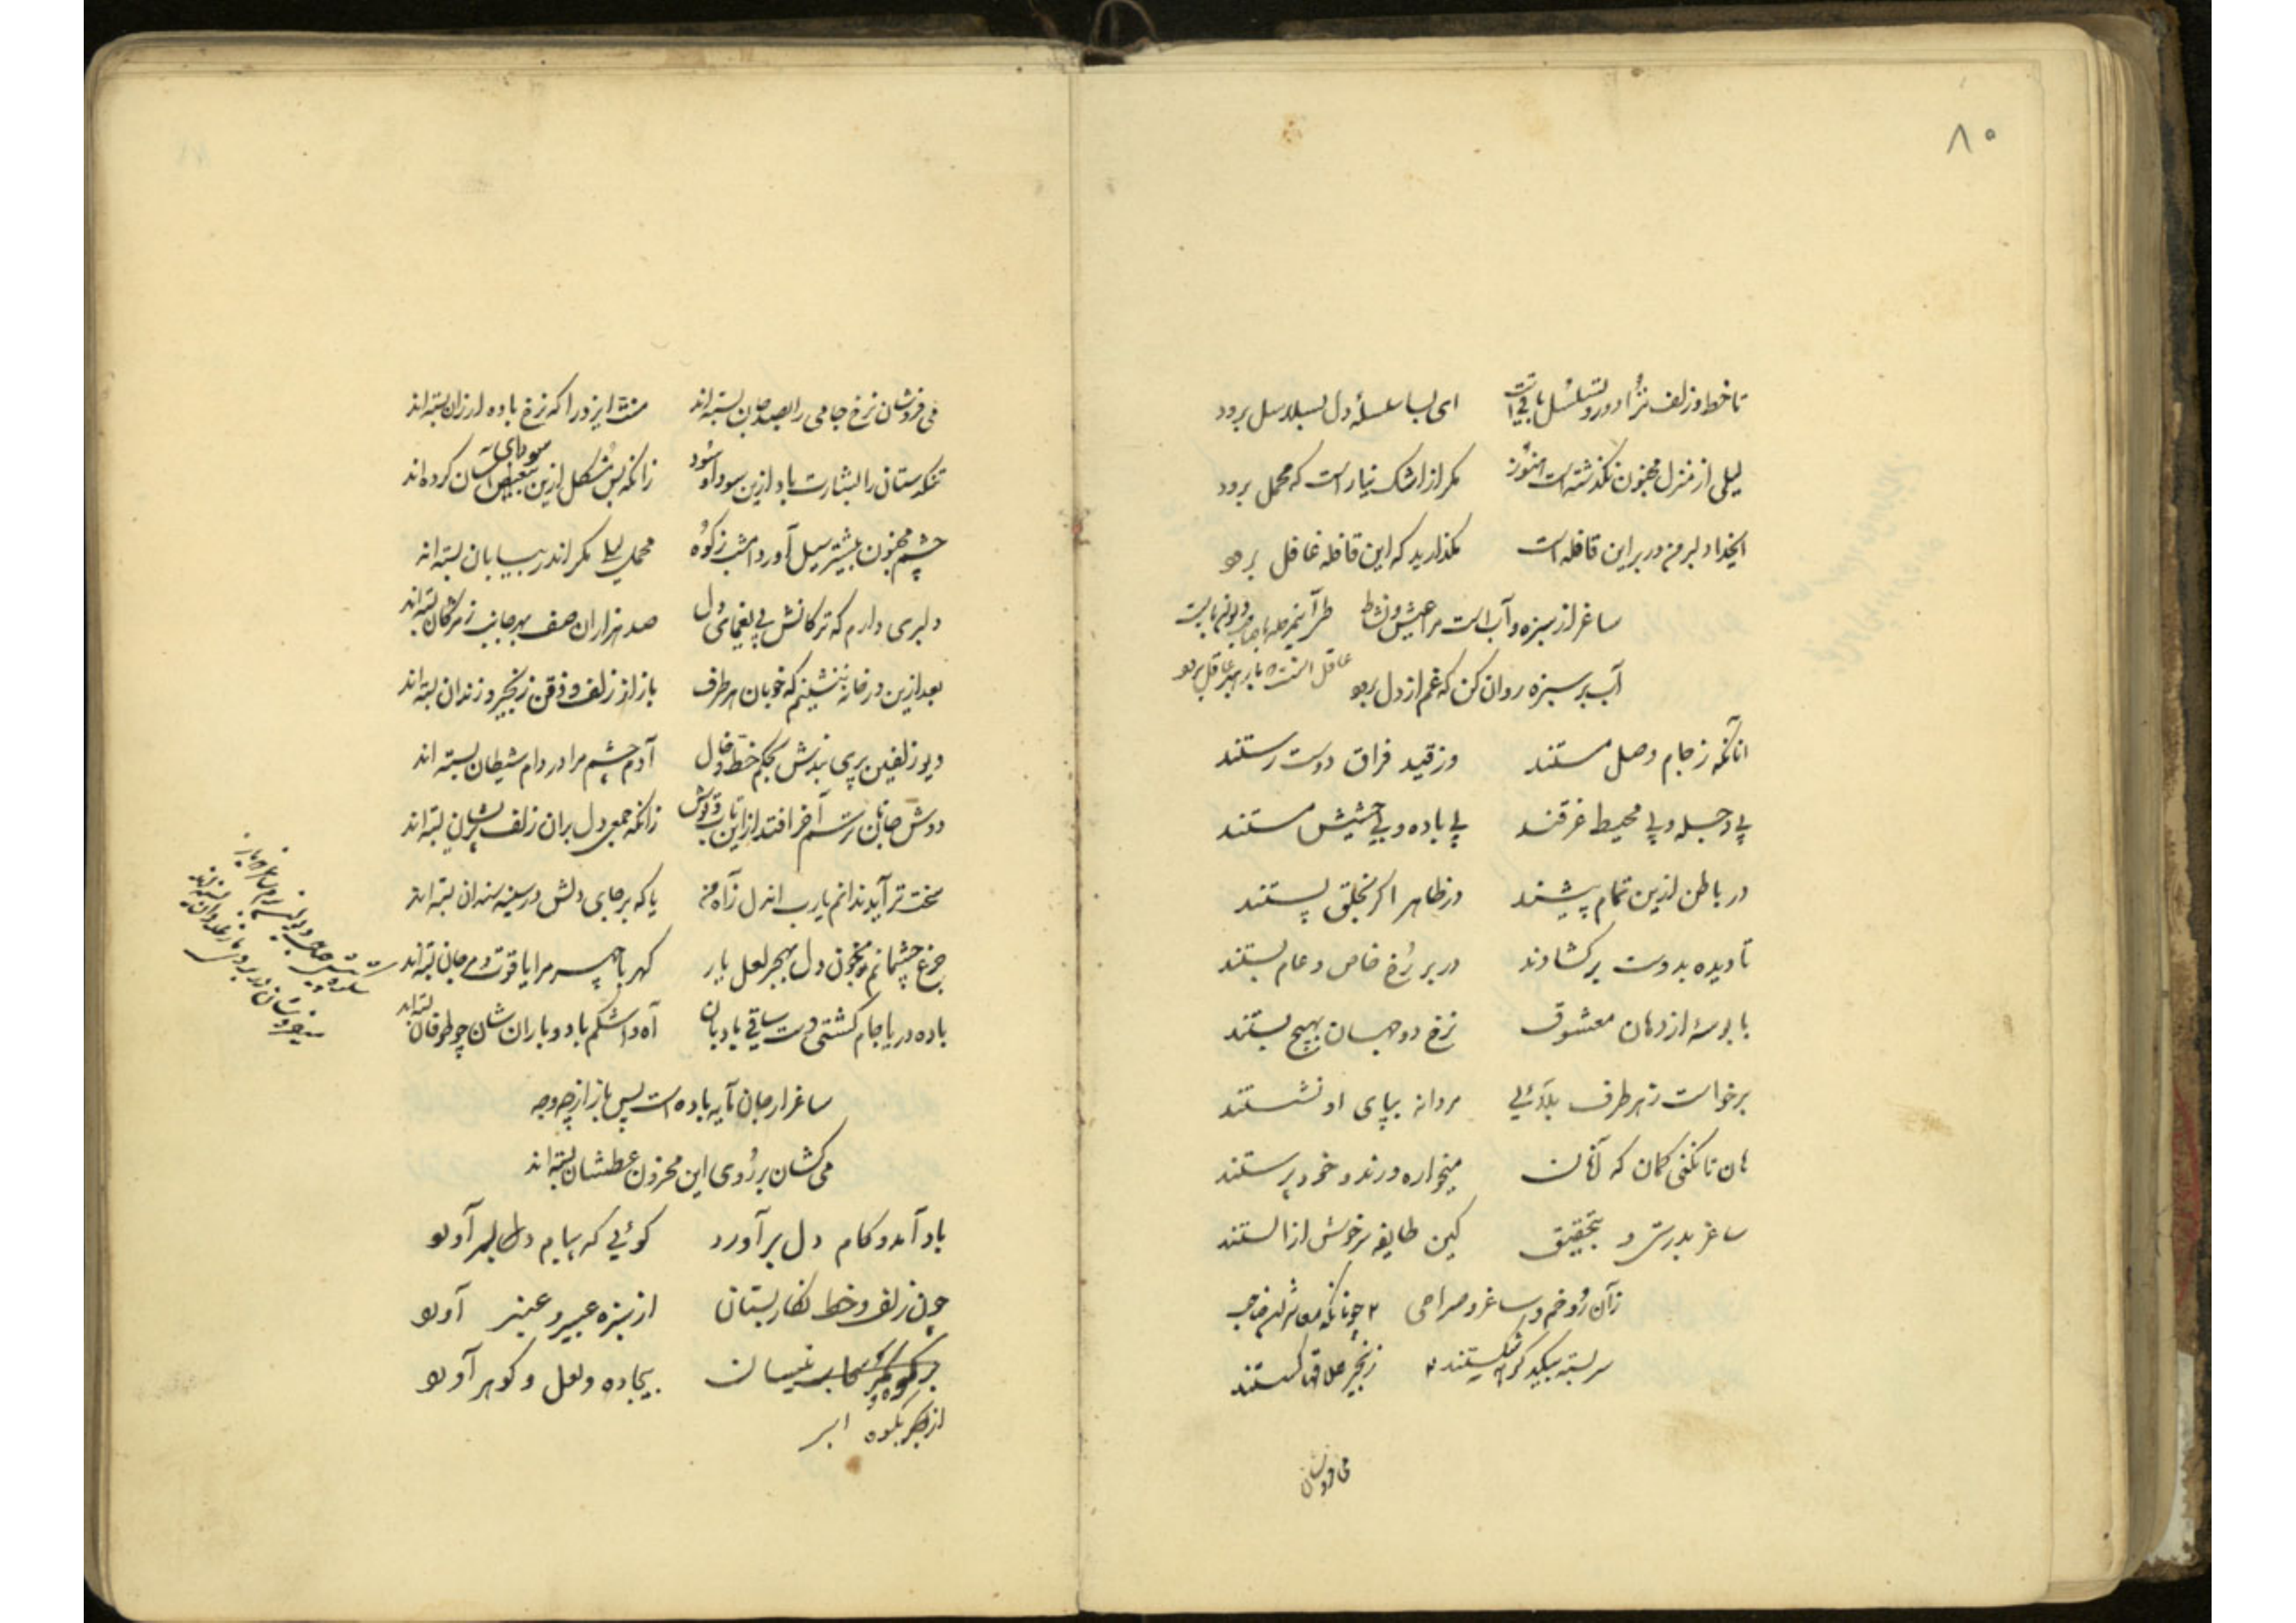 ۸۰
تا خط و زلف ترا دور و تسلسل باقیست ای بسا سلسلهٔ دل بسلاسل برود
لیلی از منزل مجنون نگذشته است هنوز مگر از اشک نیاز است که محمل برود
ایخدا دلبر من در بر این قافله است مگذارید که این قافله غافل برود
ساغر از سبزه و آب است مرا عیش و نشاط
آب بر سبزه روان کن که غم از دل برود
آنانکه ز جام وصل مستند وز قید فراق دوست رستند
بی دجله و بی محیط غرقند بی باده و بی حشیش مستند
در باطن ازین تمام پیشند در ظاهر اگر بخلق پستند
تا دیده بدوست برگشادند در بر رخ خاص و عام بستند
با بوسهٔ از دهان معشوق نرخ دو جهان بهیچ بستند
برخواست ز هر طرف بلائی مردانه بپای او نشستند
هان تا نکنی گمان که آنان میخواره و رند و خود پرستند
ساغر بدرستی و تحقیق کین طایفه سرخوش از الستند
زآن رو خم و ساغر و صراحی
سر بسته بیکدگر شکستند زنجیر علاقه گسستند
می فروشان
می فروشان نرخ جامی را بصد جان بسته‌اند منت ایزد را که نرخ باده ارزان بسته‌اند
تنگدستان را بشارت باد ازین سودا و سود زانکه بس مشکل ازین آسان کرده‌اند
سودای
چشم مجنون بیشتر سیل آورد امشب ز کوه محمل لیلا مگر اندر بیابان بسته‌اند
دلبری دارم که ترکانش پی یغمای دل صد هزاران صف بهر جانب ز مژگان بسته‌اند
بعد ازین در خانه بنشینم که خوبان هر طرف باز از زلف و ذقن زنجیر و زندان بسته‌اند
دیو زلفین پری بندش بحکم خط و خال آدم چشم مرا در دام شیطان بسته‌اند
دوش جانان ترسم آخر افتد از این تاب و توش زانکه جمعی دل بر آن زلف پریشان بسته‌اند
سخت تر آید ندانم یارب آندل ز آه من یا که بر جای دلش در سینه سندان بسته‌اند
جزع چشمانم بخون دل بهجر لعل یار کهربا چهر مرا یاقوت و مرجان بسته‌اند
باده دریا جام کشتی دست ساقی بادبان آه و اشکم باد و باران شان چو طوفان بسته‌اند
ساغر ار جان مایه باده است پس باز از چه وجه
می کشان بر روی این محزون عطشان بسته‌اند
باد آمد و کام دل برآورد گوئی که پیام دلبر آورد
چون زلف و خط نگار بستان از سبزه عبیر و عنبر آورد
بر کوه نیسان بیجاده و لعل و گوهر آورد
از بحر بکوه ابر